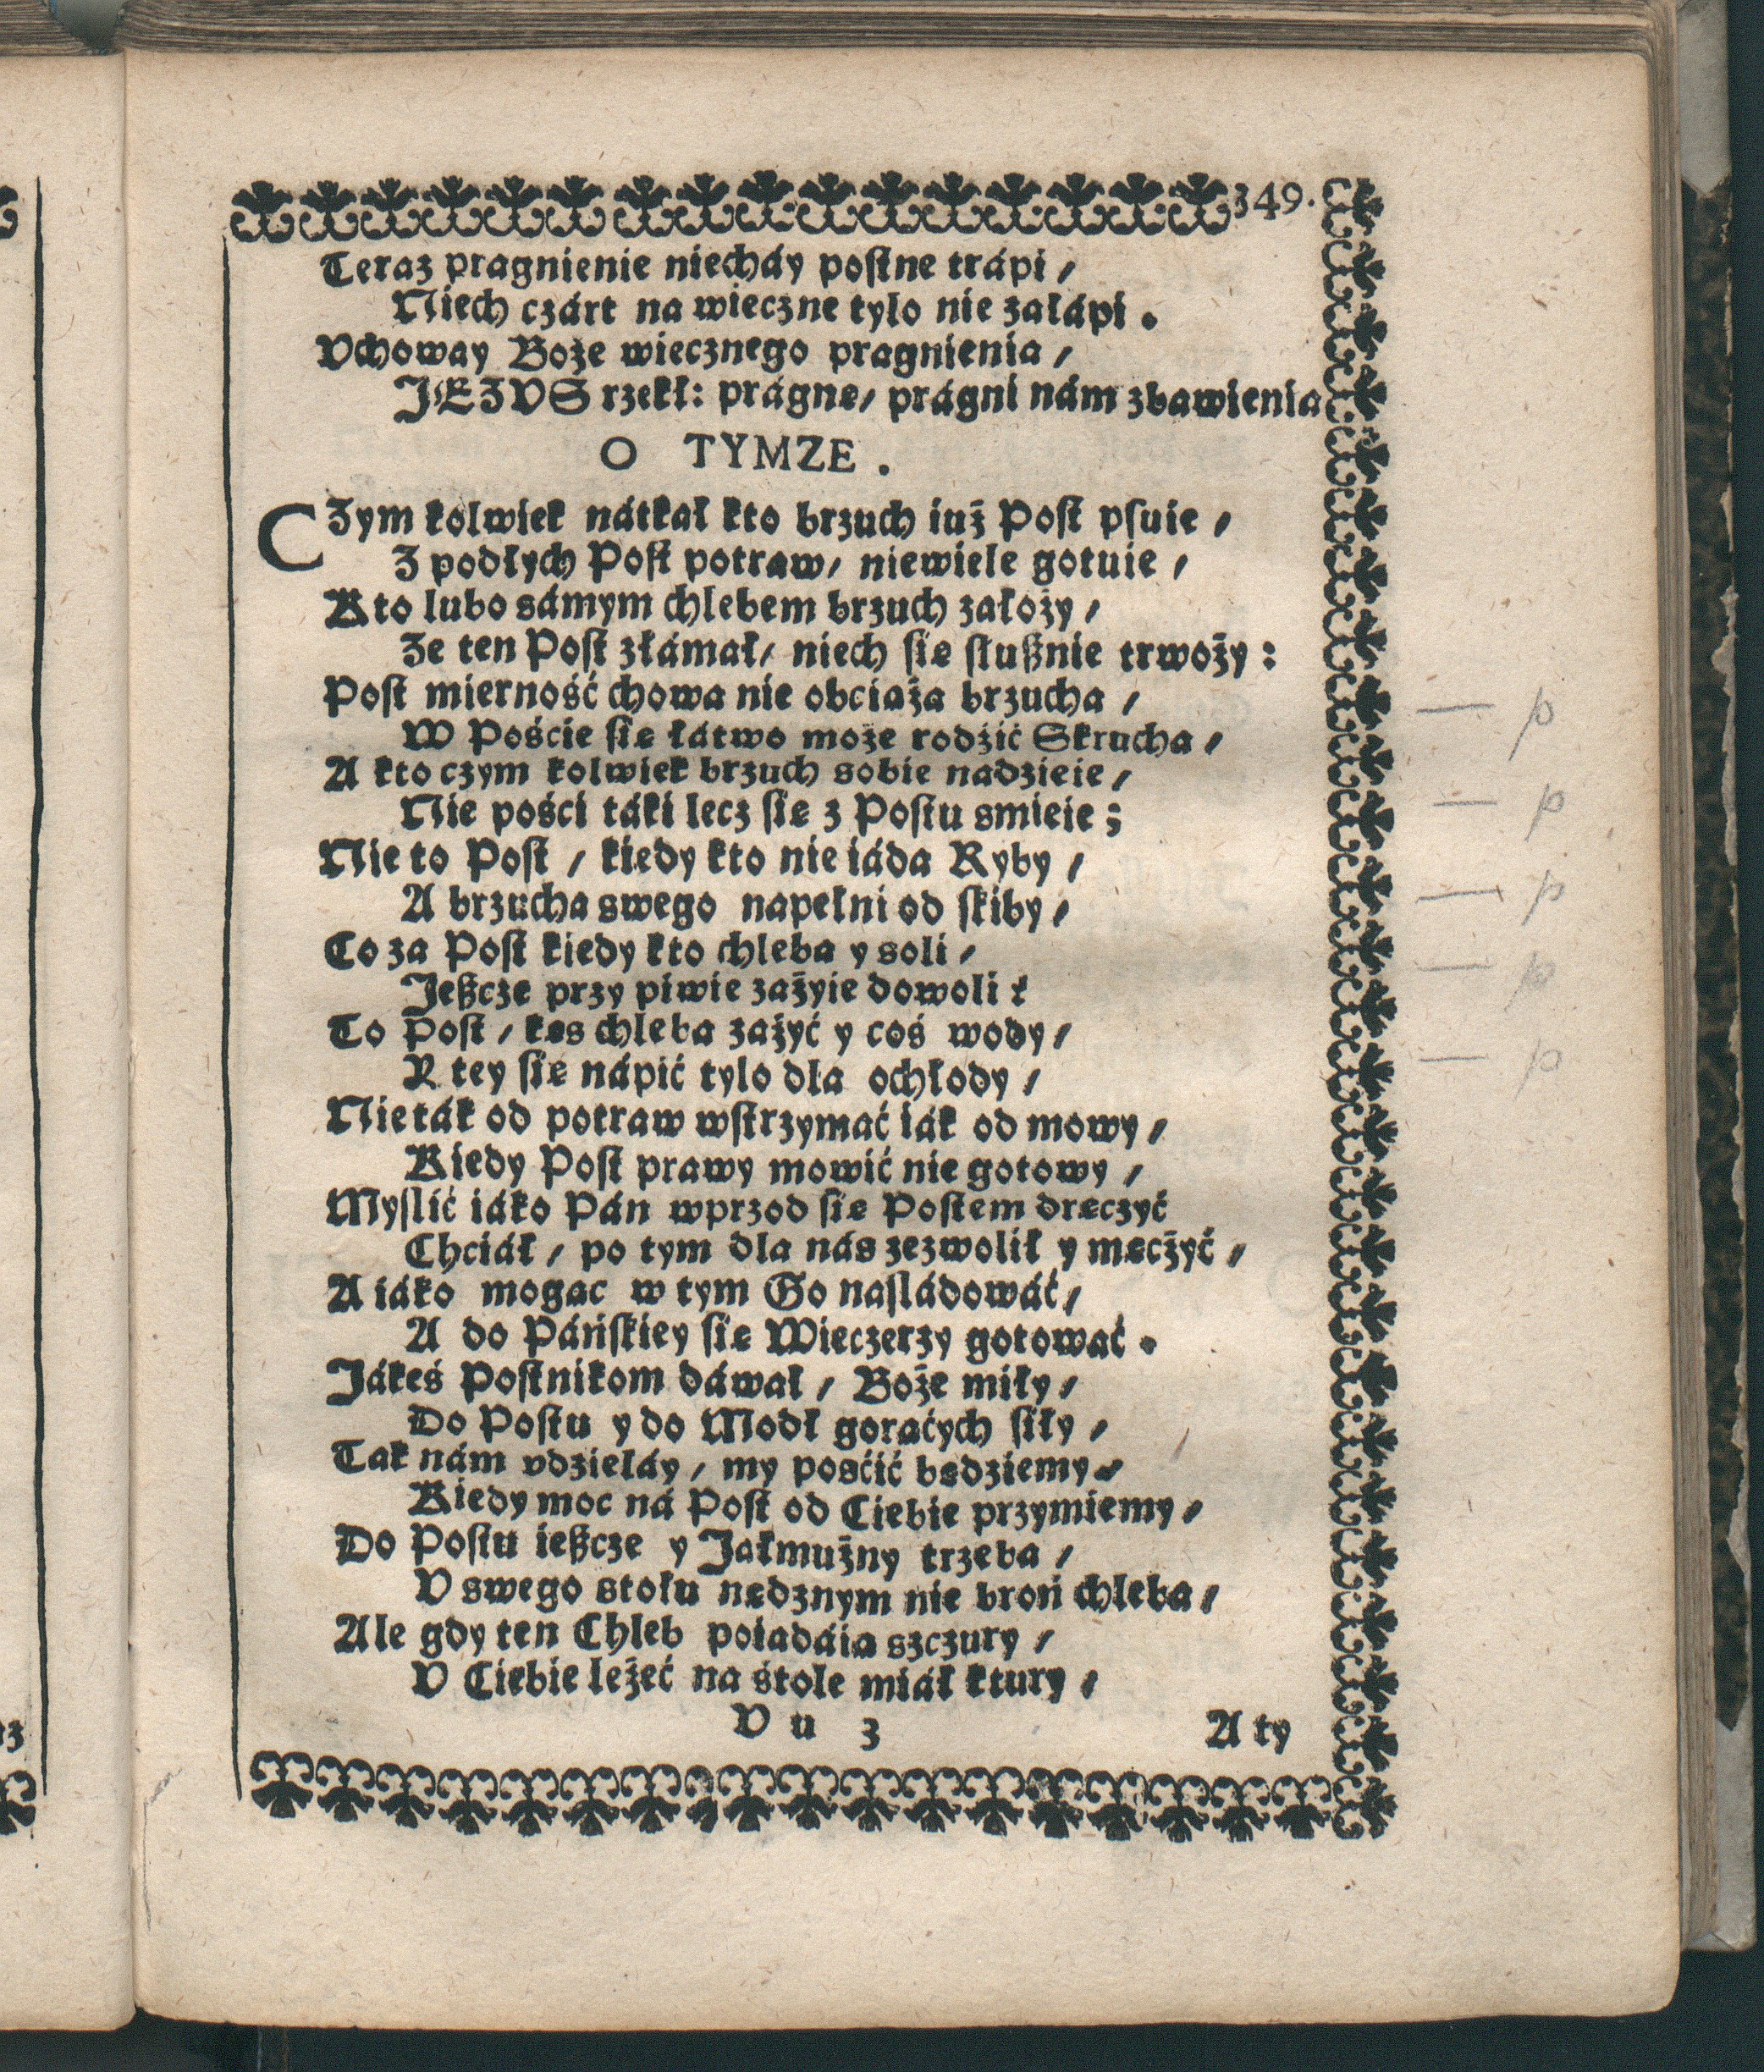 349.
Teraz pragnienie niecháy postne trápi /
Niech czárt na wieczne tylo nie załápi .
Vchoway Boże wiecznego pragnienia /
JEZVS rzekł: prágnę/ prágni nám zbawienia
O TYMZE .
CZym kolwiek nátkał kto brzuch iuż Post psuie /
Z podłych Post potraw/ niewiele gotuie /
Kto lubo sámym chlebem brzuch założy /
Ze ten Post złámał/ niech się słußnie trwoży :
Post mierność chowa nie obciąża brzucha /
W Poście się łátwo może rodźić Skrucha /
A kto czym kolwiek brzuch sobie nadzieie /
Nie pości táki lecz się z Postu smieie ;
Nie to Post / kiedy kto nie iáda Ryby /
A brzucha swego napełni od skiby /
Co za Post kiedy kto chleba y soli /
Jeßcze przy piwie zażyie dowoli ?
To Post / kęs chleba zażyć y coś wody /
Y tey się nápić tylo dla ochłody /
Nie ták od potraw wstrzymáć iák od mowy /
Kiedy Post prawy mowić nie gotowy /
Myslić iáko Pán wprzod się Postem dręczyć
Chciáł / po tym dla nás zezwolił y męczyć /
A iáko mogąc w tym Go nasládowáć /
A do Páńskiey się Wieczerzy gotowáć .
Jákeś Postnikom dáwał / Boże miły /
Do Postu y do Modł gorąćych siły /
Tak nám vdzieláy / my pośćić będziemy
Kiedy moc ná Post od Ciebie przymiemy /
Do Postu ießcze y Jałmużny trzeba /
V swego stołu nędznym nie broń chleba /
Ale gdy ten Chleb poiadáią szczury /
V Ciebie leżeć na stole miáł ktury /
V u 3
A ty
— p
— p
— p
— p
— p